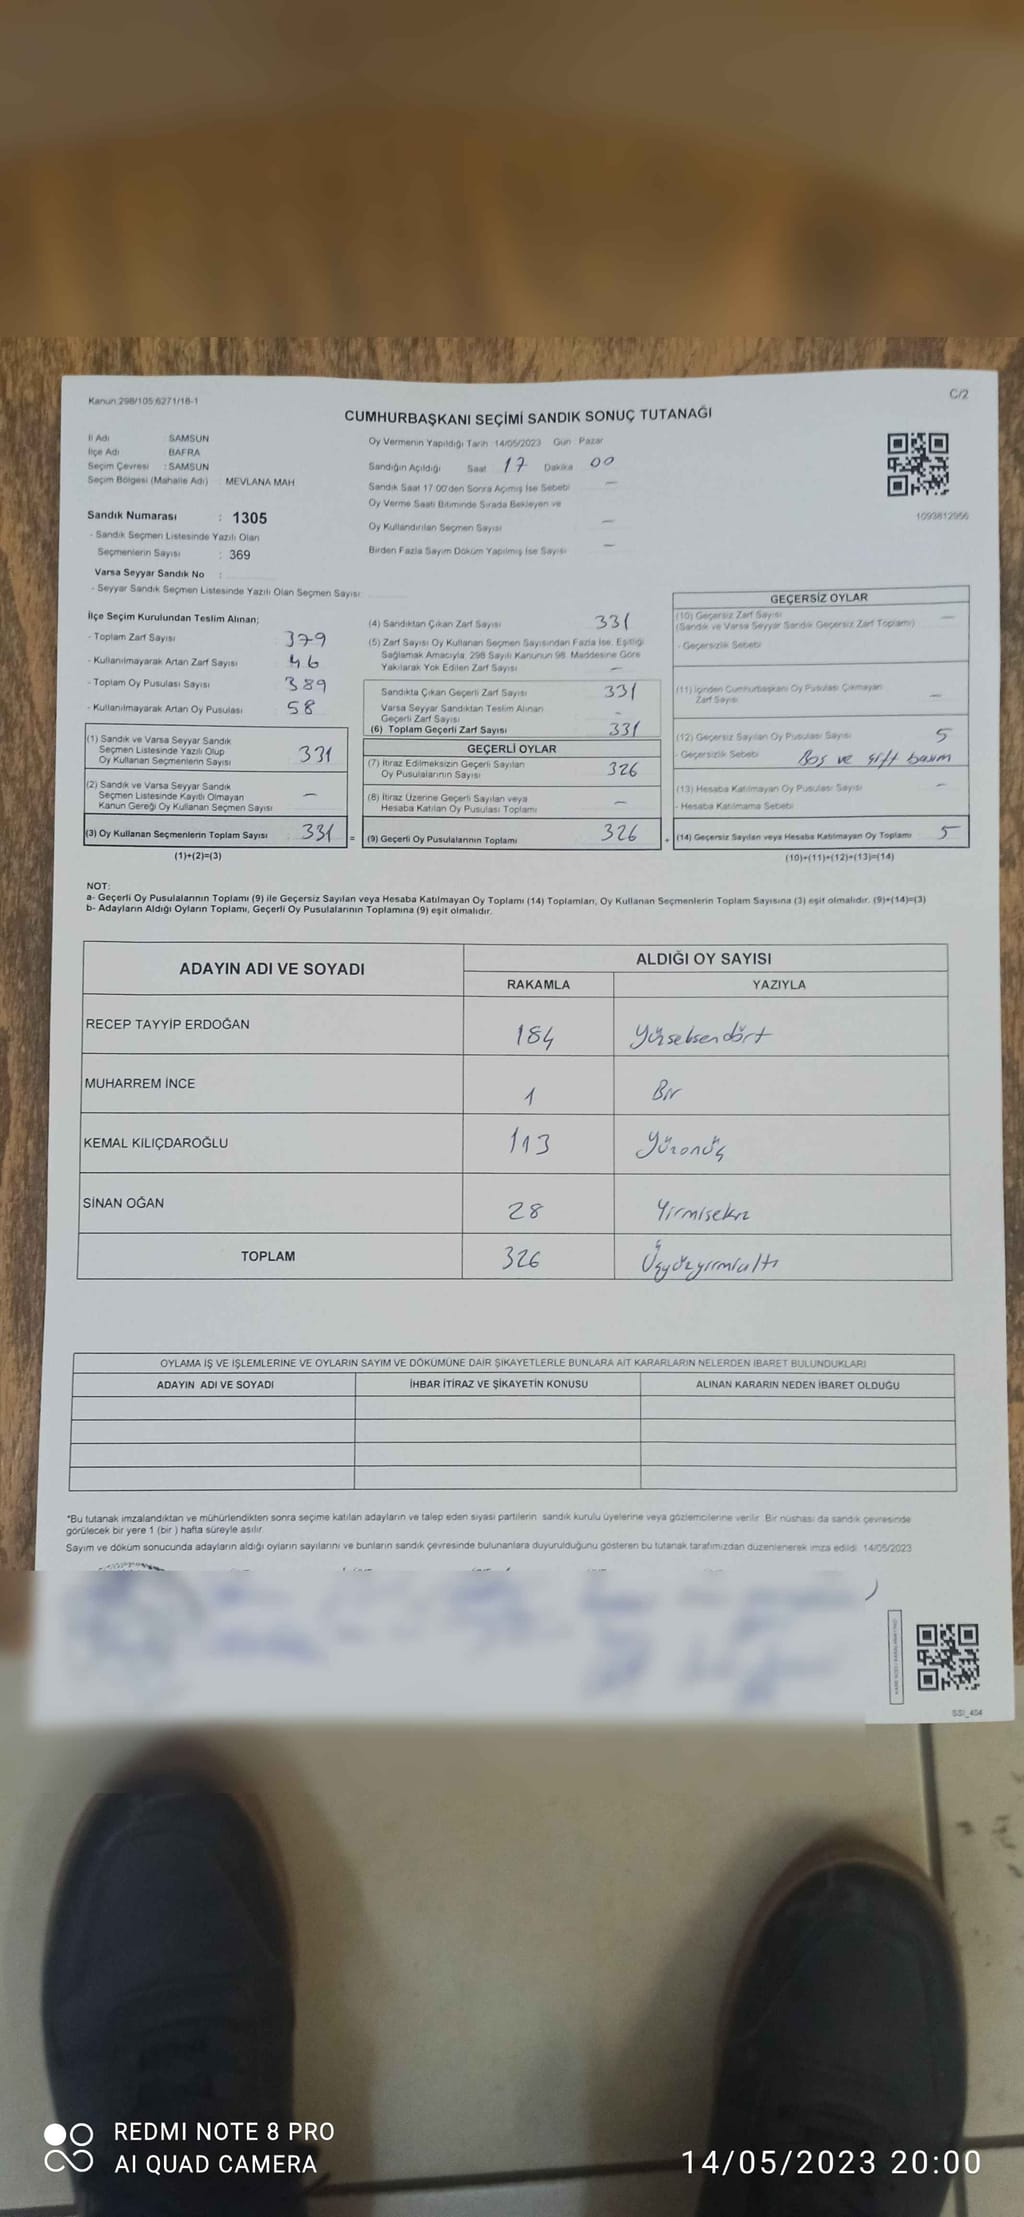 Kanun:298/105;6271/18-1
C/2
CUMHURBAŞKANI SEÇİMİ SANDIK SONUÇ TUTANAĞI
İl Adı SAMSUN
İlçe Adı BAFRA
Seçim Çevresi : SAMSUN
Seçim Bölgesi (Mahalle Adı) : MEVLANA MAH
Sandık Numarası : 1305
- Sandık Seçmen Listesinde Yazılı Olan
Seçmenlerin Sayısı : 369
Varsa Seyyar Sandık No :
- Seyyar Sandık Seçmen Listesinde Yazılı Olan Seçmen Sayısı:
Oy Vermenin Yapıldığı Tarih 14/05/2023 Gün Pazar
Sandığın Açıldığı Saat 17 Dakika 00
Sandık Saat 17:00'den Sonra Açımış İse Sebebi —
Oy Verme Saati Bitiminde Sırada Bekleyen ve
Oy Kullandırılan Seçmen Sayısı —
Birden Fazla Sayım Döküm Yapılmış İse Sayısı —
1093812956
İlçe Seçim Kurulundan Teslim Alınan;
- Toplam Zarf Sayısı 379
- Kullanılmayarak Artan Zarf Sayısı 46
- Toplam Oy Pusulası Sayısı 389
- Kullanılmayarak Artan Oy Pusulası 58
(1) Sandık ve Varsa Seyyar Sandık
Seçmen Listesinde Yazılı Olup
Oy Kullanan Seçmenlerin Sayısı 331
(2) Sandık ve Varsa Seyyar Sandık
Seçmen Listesinde Kayıtlı Olmayan
Kanun Gereği Oy Kullanan Seçmen Sayısı —
(3) Oy Kullanan Seçmenlerin Toplam Sayısı 331 =
(1)+(2)=(3)
(4) Sandıktan Çıkan Zarf Sayısı 331
(5) Zarf Sayısı Oy Kullanan Seçmen Sayısından Fazla İse, Eşitliği
Sağlamak Amacıyla, 298 Sayılı Kanunun 98. Maddesine Göre
Yakılarak Yok Edilen Zarf Sayısı —
Sandıkta Çıkan Geçerli Zarf Sayısı 331
Varsa Seyyar Sandıktan Teslim Alınan
Geçerli Zarf Sayısı -
(6) Toplam Geçerli Zarf Sayısı 331
GEÇERLİ OYLAR
(7) İtiraz Edilmeksizin Geçerli Sayılan
Oy Pusulalarının Sayısı 326
(8) İtiraz Üzerine Geçerli Sayılan veya
Hesaba Katılan Oy Pusulası Toplamı —
(9) Geçerli Oy Pusulalarının Toplamı 326 +
GEÇERSİZ OYLAR
(10) Geçersiz Zarf Sayısı —
(Sandık ve Varsa Seyyar Sandık Geçersiz Zarf Toplamı)
- Geçersizlik Sebebi
(11) İçinden Cumhurbaşkanı Oy Pusulası Çıkmayan
Zarf Sayısı —
(12) Geçersiz Sayılan Oy Pusulası Sayısı 5
- Geçersizlik Sebebi Boş ve çift basım
(13) Hesaba Katılmayan Oy Pusulası Sayısı -
- Hesaba Katılmama Sebebi
(14) Geçersiz Sayılan veya Hesaba Katılmayan Oy Toplamı 5
(10)+(11)+(12)+(13)=(14)
NOT:
a- Geçerli Oy Pusulalarının Toplamı (9) ile Geçersiz Sayılan veya Hesaba Katılmayan Oy Toplamı (14) Toplamları, Oy Kullanan Seçmenlerin Toplam Sayısına (3) eşit olmalıdır. (9)+(14)=(3)
b- Adayların Aldığı Oyların Toplamı, Geçerli Oy Pusulalarının Toplamına (9) eşit olmalıdır.
ADAYIN ADI VE SOYADI
ALDIĞI OY SAYISI
RAKAMLA YAZIYLA
RECEP TAYYİP ERDOĞAN 184 Yüzseksendört
MUHARREM İNCE 1 Bir
KEMAL KILIÇDAROĞLU 113 Yüzonüç
SİNAN OĞAN 28 Yirmisekiz
TOPLAM 326 Üçyüzyirmialtı
OYLAMA İŞ VE İŞLEMLERİNE VE OYLARIN SAYIM VE DÖKÜMÜNE DAİR ŞİKAYETLERLE BUNLARA AİT KARARLARIN NELERDEN İBARET BULUNDUKLARI
ADAYIN ADI VE SOYADI İHBAR İTİRAZ VE ŞİKAYETİN KONUSU ALINAN KARARIN NEDEN İBARET OLDUĞU
*Bu tutanak imzalandıktan ve mühürlendikten sonra seçime katılan adayların ve talep eden siyasi partilerin sandık kurulu üyelerine veya gözlemcilerine verilir. Bir nüshası da sandık çevresinde
görülecek bir yere 1 (bir ) hafta süreyle asılır.
Sayım ve döküm sonucunda adayların aldığı oyların sayılarını ve bunların sandık çevresinde bulunanlara duyurulduğunu gösteren bu tutanak tarafımızdan düzenlenerek imza edildi. 14/05/2023
SSI_404
REDMI NOTE 8 PRO
AI QUAD CAMERA
14/05/2023 20:00